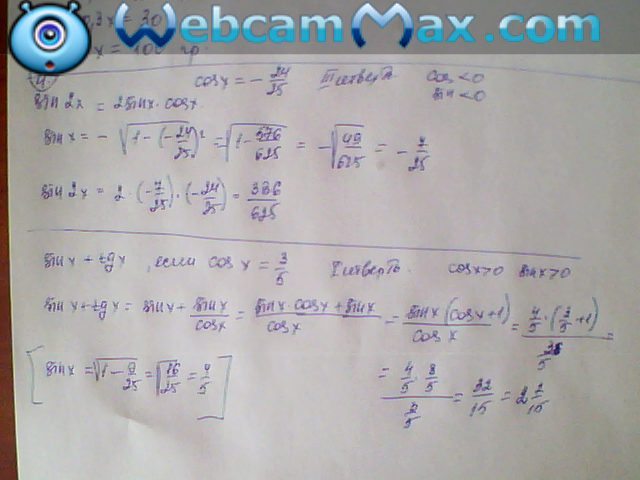 WebcamMax.com
,3x = 30
x = 100 гр.
cos x = - 24/25 III четверть cos < 0
sin < 0
sin 2x = 2 sin x · cos x
sin x = - √(1 - (-24/25)²) = √(1 - 576/625) = - √(49/625) = - 7/25
sin 2x = 2 · (-7/25) · (-24/25) = 336/625
sin x + tg x , если cos x = 3/5 I четверть cos x > 0 sin x > 0
sin x + tg x = sin x + sin x/cos x = (sin x · cos x + sin x)/cos x = sin x (cos x + 1)/cos x = (4/5 · (3/5 + 1))/(3/5) =
[ sin x = √(1 - 9/25) = √(16/25) = 4/5 ]
= (4/5 · 8/5)/(3/5) = 32/15 = 2 2/15